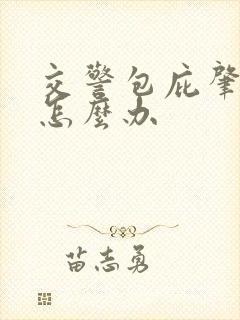 交警包庇肇
怎麼办
苗志勇